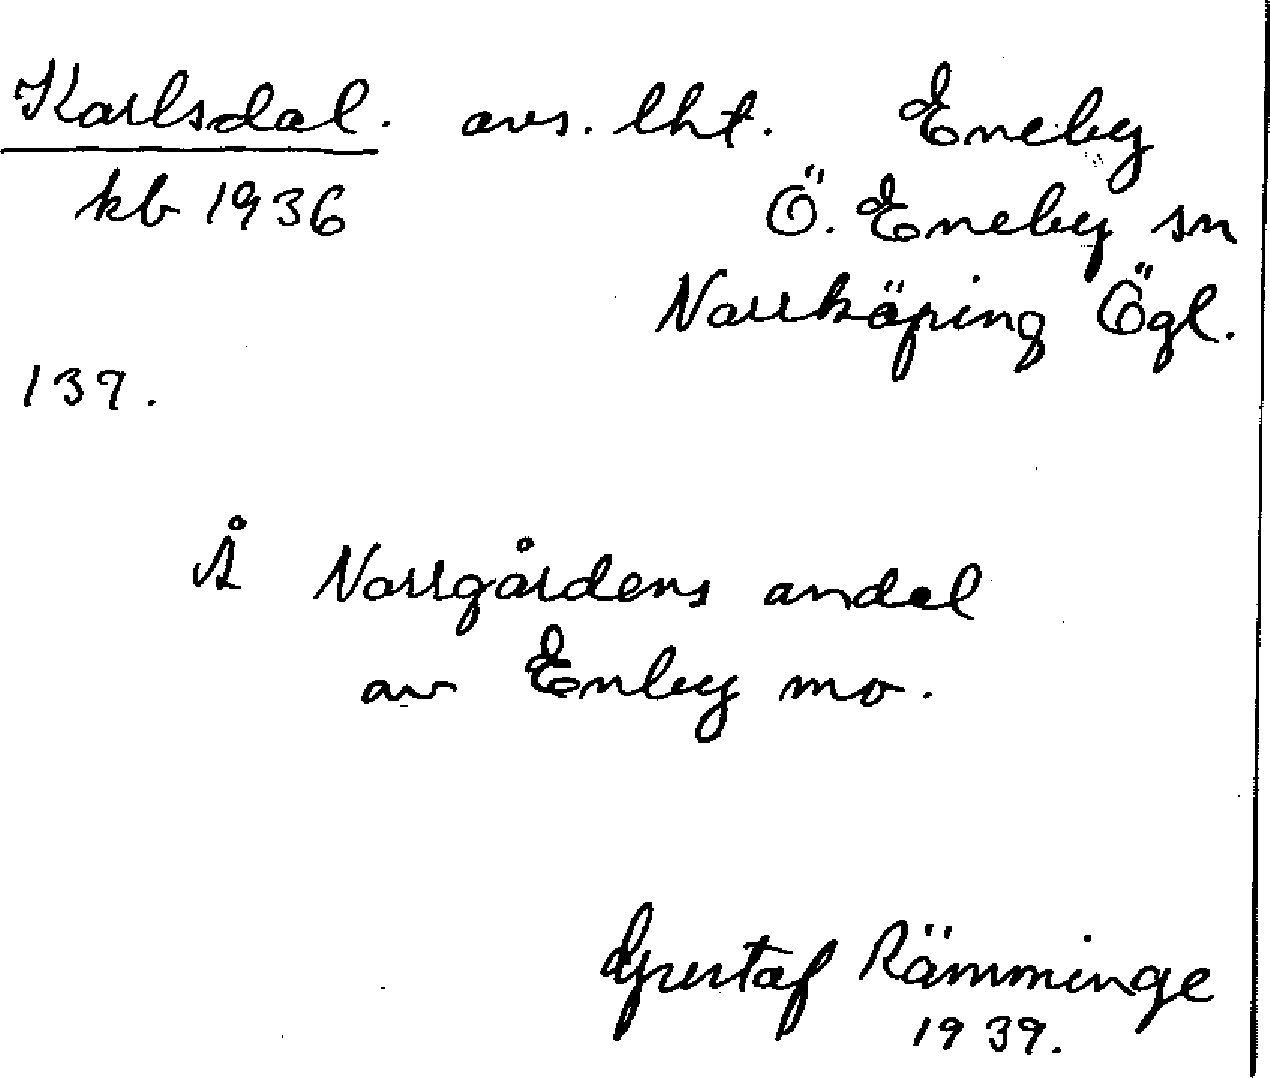 Karlsdal. avs. lht. Eneby
kb 1936 Ö. Eneby sn
Norrköping Ögl.
139.
Å Norrgårdens andel
av Enby mo.
Gustaf Rämminge
1939.